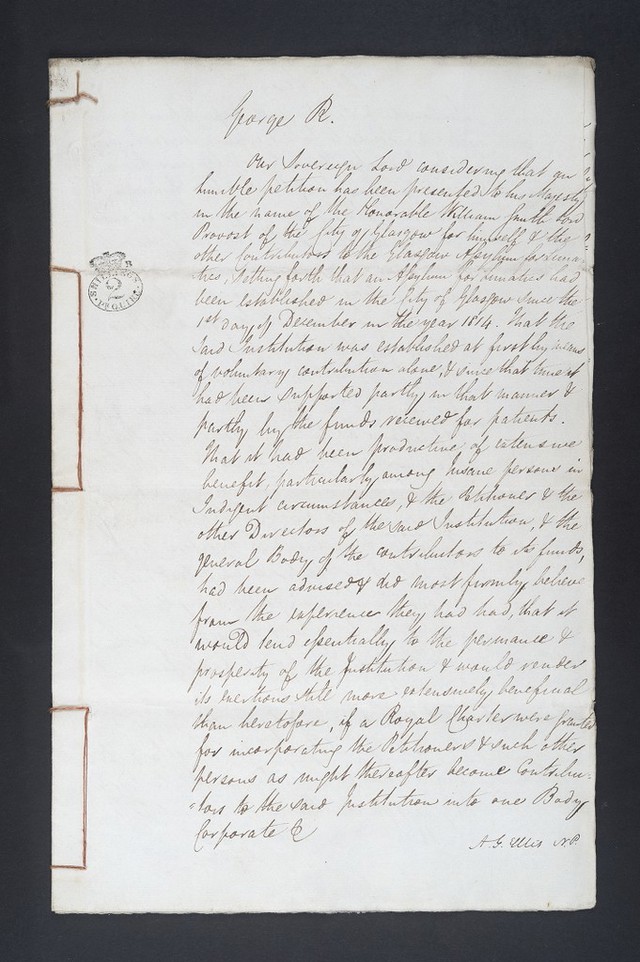 George R.
Our Sovereign Lord considering that an
humble petition has been presented to his Majesty
in the name of the Honorable William Smith Lord
Provost of the City of Glasgow for himself & the
other Contributors to the Glasgow Asylum for Luna-
tics, Setting forth that an Asylum for Lunatics had
been established in the City of Glasgow since the
1st day of December in the year 1814. That the
Said Institution was established at first by means
of voluntary contribution alone, & since that time it
had been supported partly in that manner &
partly by the funds received for patients.
That it had been productive of extensive
benefit, particularly among insane persons in
Indigent circumstances, & the Petitioner & the
other Directors of the said Institution, & the
general Body of the contributors to its funds,
had been advised & did most firmly believe
from the experience they had had, that it
would tend essentially to the permance &
prosperity of the Institution & would render
its exertions still more extensively beneficial
than heretofore, if a Royal Charter were granted
for incorporating the Petitioners & such other
persons as might thereafter become Contribu-
=tors to the said Institution into one Body
Corporate &
A. G. Ellis N.P.
SHILLING
2